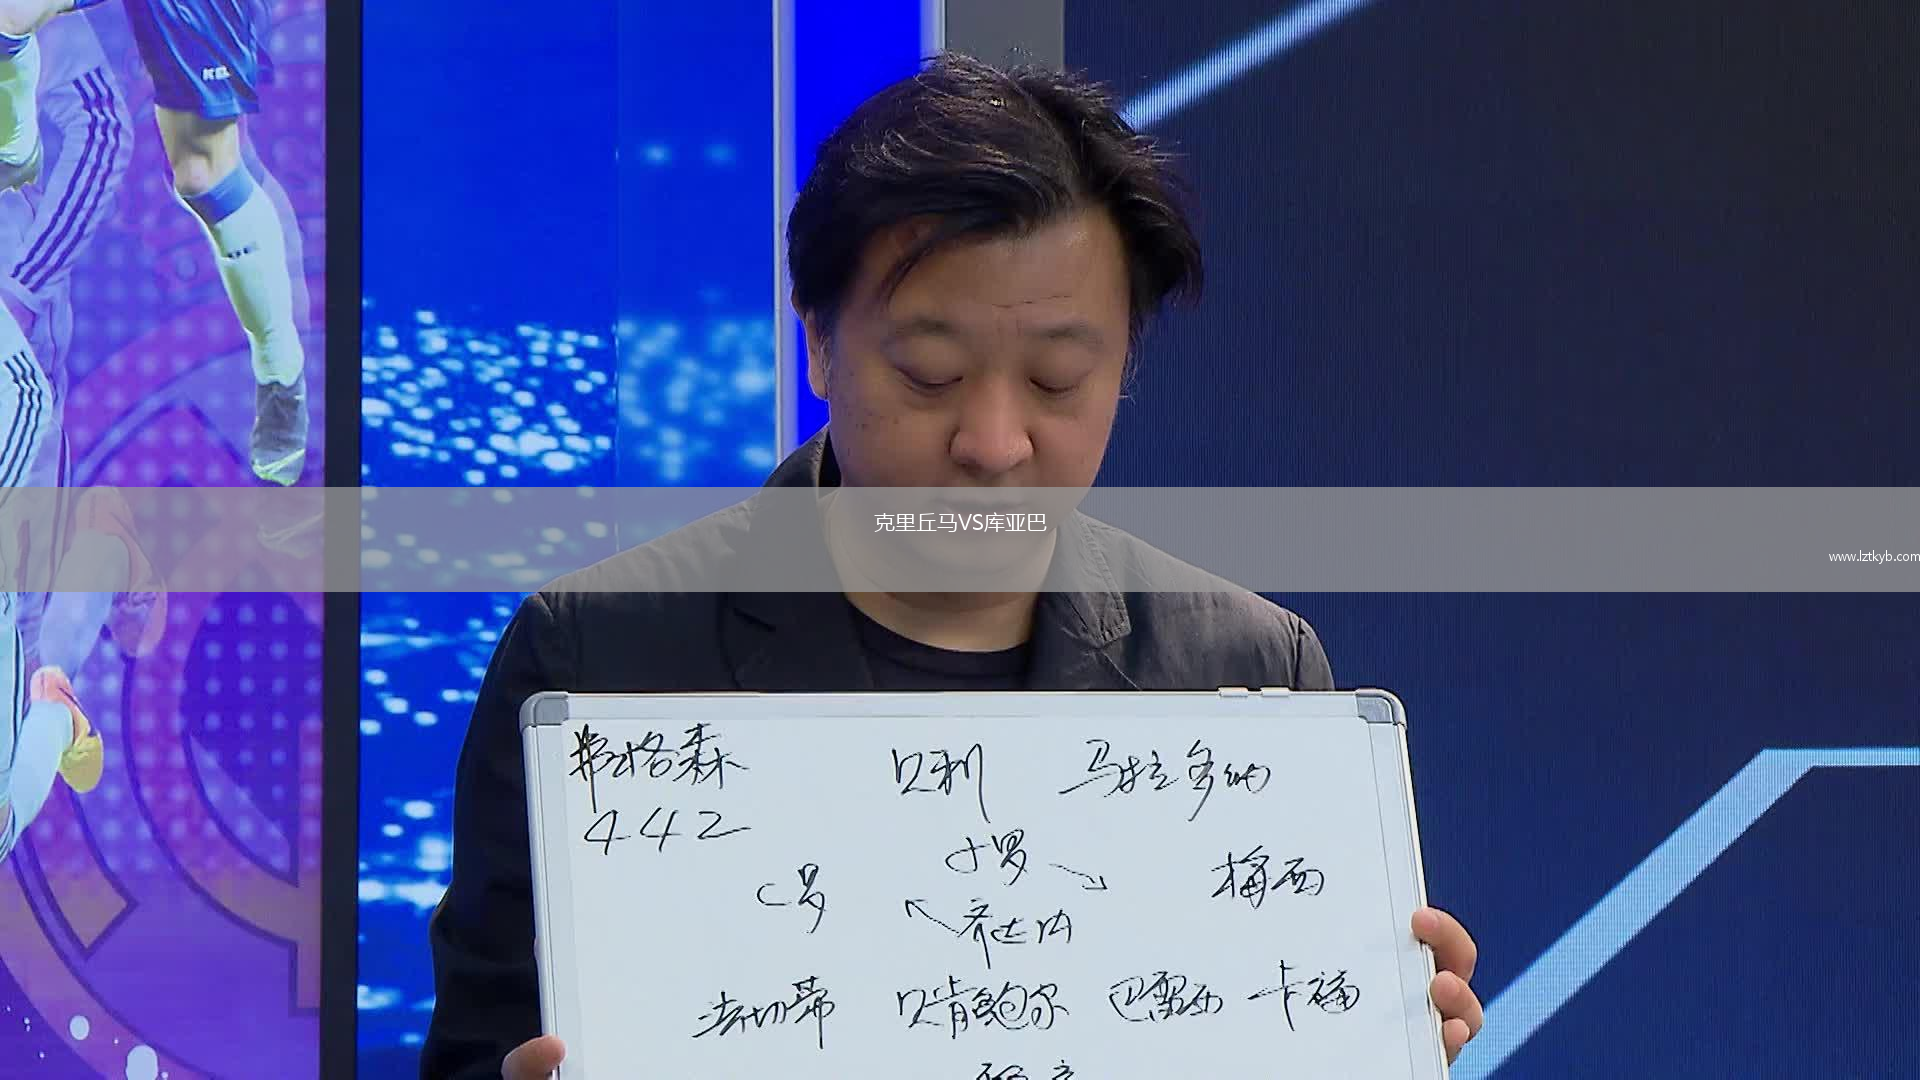 克里丘马VS库亚巴
www.lztkyb.com
弗格森 贝利 马拉多纳
442
小罗
C罗 梅西
齐达内
法切蒂 贝肯鲍尔 巴雷西 卡福